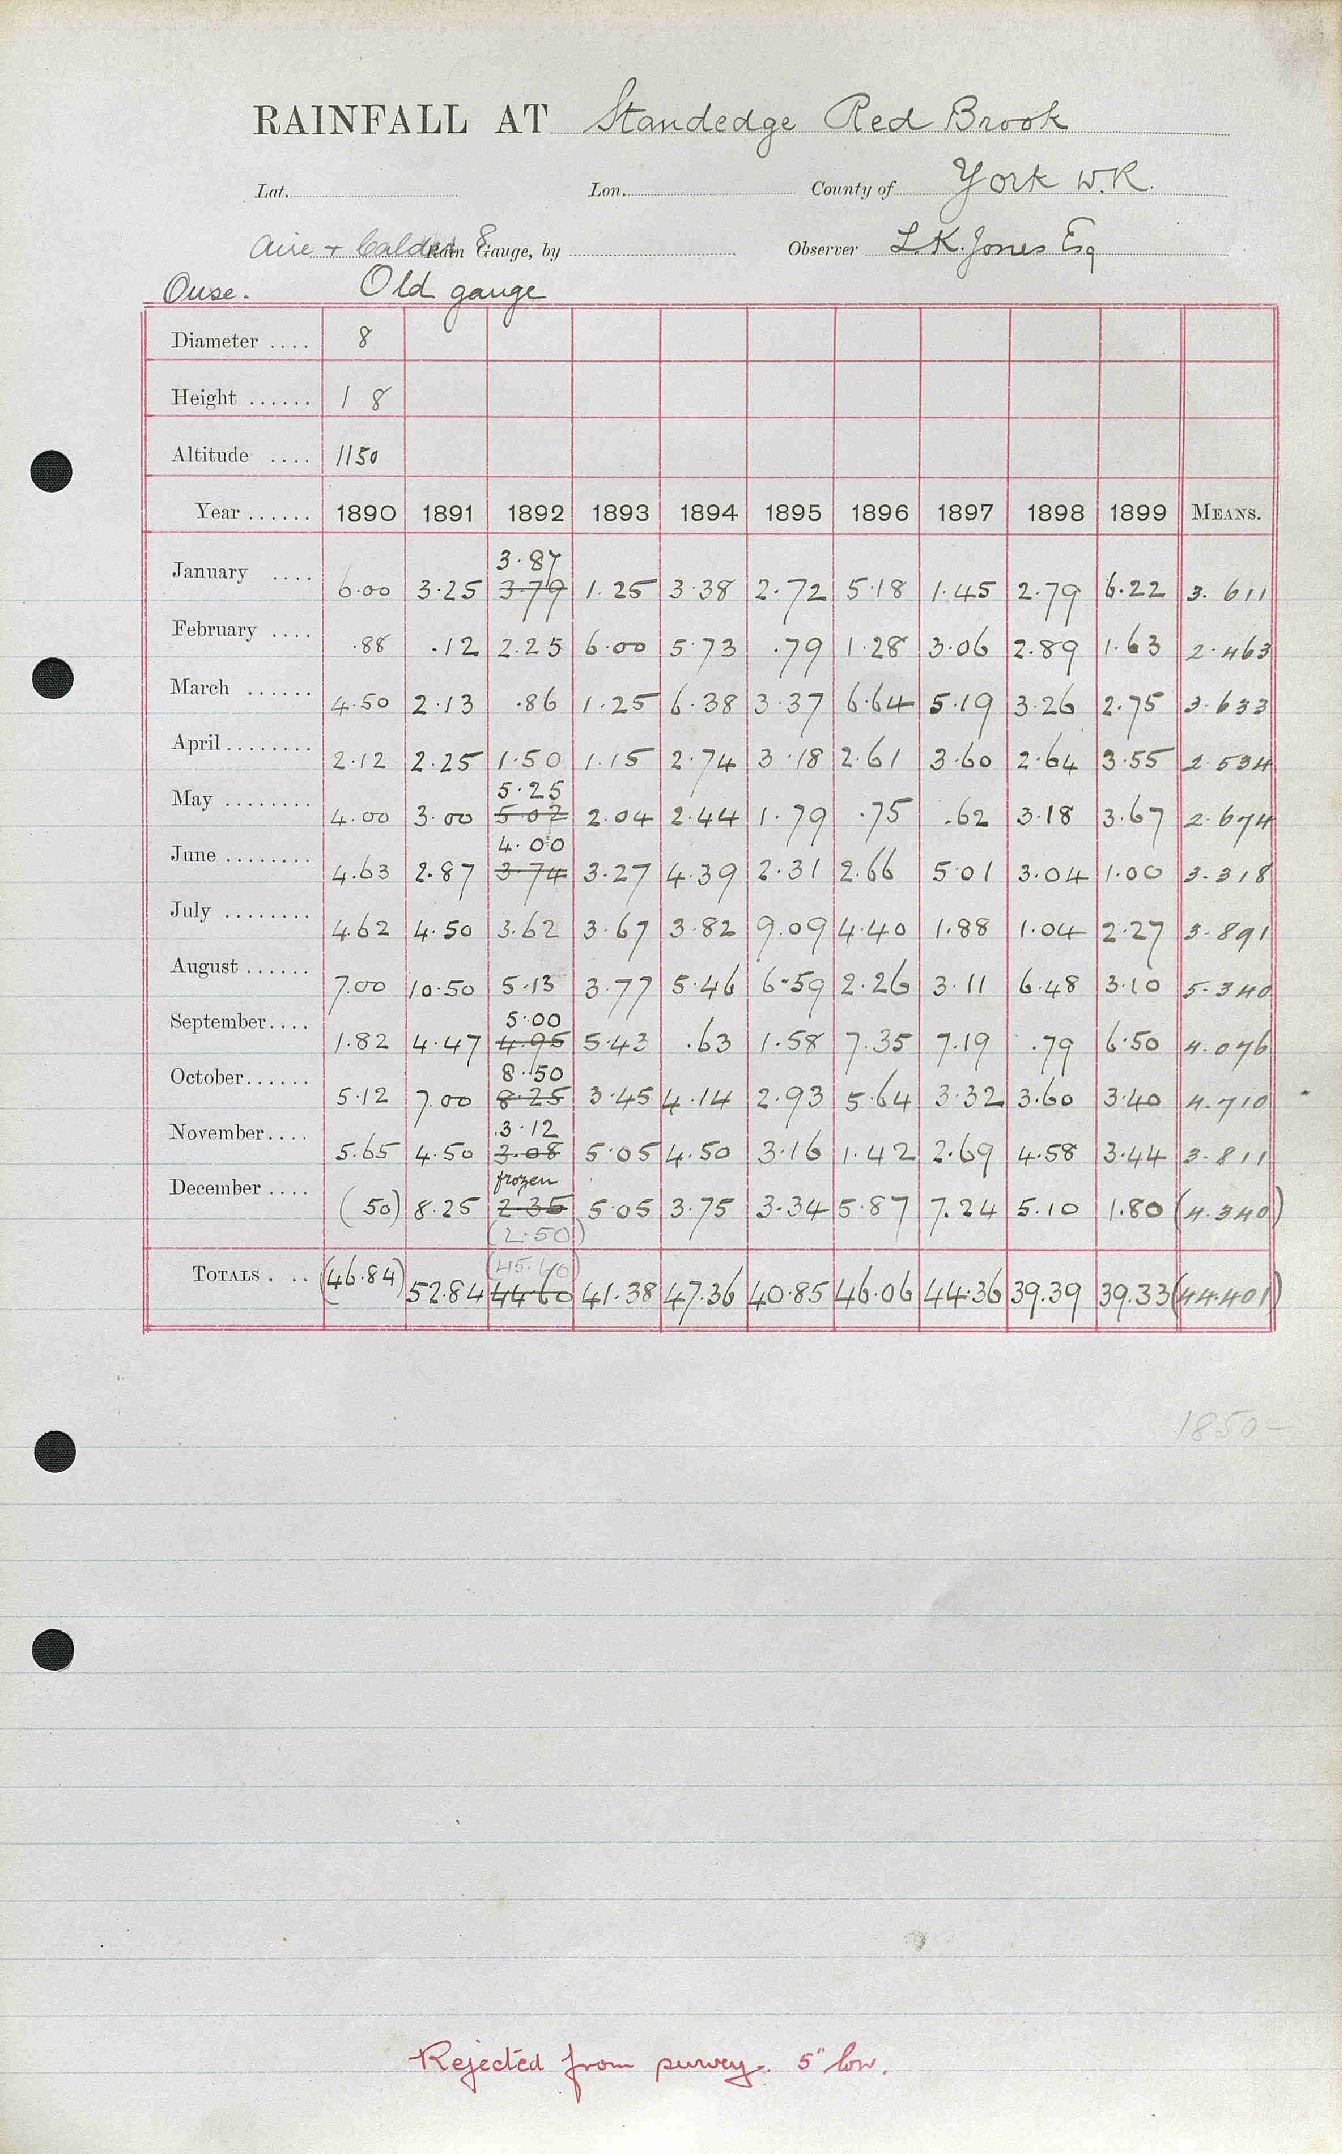 RAINFALL AT Standedge Red Brook
Lat. Lon. County of York W.R.
Aire + Calder 8 Rain Gauge, by Observer L.K. Jones Esq
Ouse. Old gauge
Diameter .... 8
Height ...... 1 8
Altitude .... 1150
Year ...... 1890 1891 1892 1893 1894 1895 1896 1897 1898 1899 MEANS.
3.87
January .... 6.00 3.25 3.79 1.25 3.38 2.72 5.18 1.45 2.79 6.22 3.611
February .... .88 .12 2.25 6.00 5.73 .79 1.28 3.06 2.89 1.63 2.463
March ...... 4.50 2.13 .86 1.25 6.38 3.37 6.64 5.19 3.26 2.75 3.633
April ........ 2.12 2.25 1.50 1.15 2.74 3.18 2.61 3.60 2.64 3.55 2.534
5.25
May ........ 4.00 3.00 5.07 2.04 2.44 1.79 .75 .62 3.18 3.67 2.674
4.00
June ........ 4.63 2.87 3.74 3.27 4.39 2.31 2.66 5.01 3.04 1.00 3.318
July ........ 4.62 4.50 3.62 3.67 3.82 9.09 4.40 1.88 1.04 2.27 3.891
August ...... 7.00 10.50 5.13 3.77 5.46 6.59 2.26 3.11 6.48 3.10 5.340
5.00
September.... 1.82 4.47 4.95 5.43 .63 1.58 7.35 7.19 .79 6.50 4.076
8.50
October...... 5.12 7.00 8.25 3.45 4.14 2.93 5.64 3.32 3.60 3.40 4.710
3.12
November.... 5.65 4.50 3.08 5.05 4.50 3.16 1.42 2.69 4.58 3.44 3.811
frozen
December .... (50) 8.25 2.35 5.05 3.75 3.34 5.87 7.24 5.10 1.80 (4.340)
(2.50)
(45.60)
TOTALS . .. (46.84) 52.84 44.60 41.38 47.36 40.85 46.06 44.36 39.39 39.33 (44.401)
1850-
Rejected from survey. 5" low.